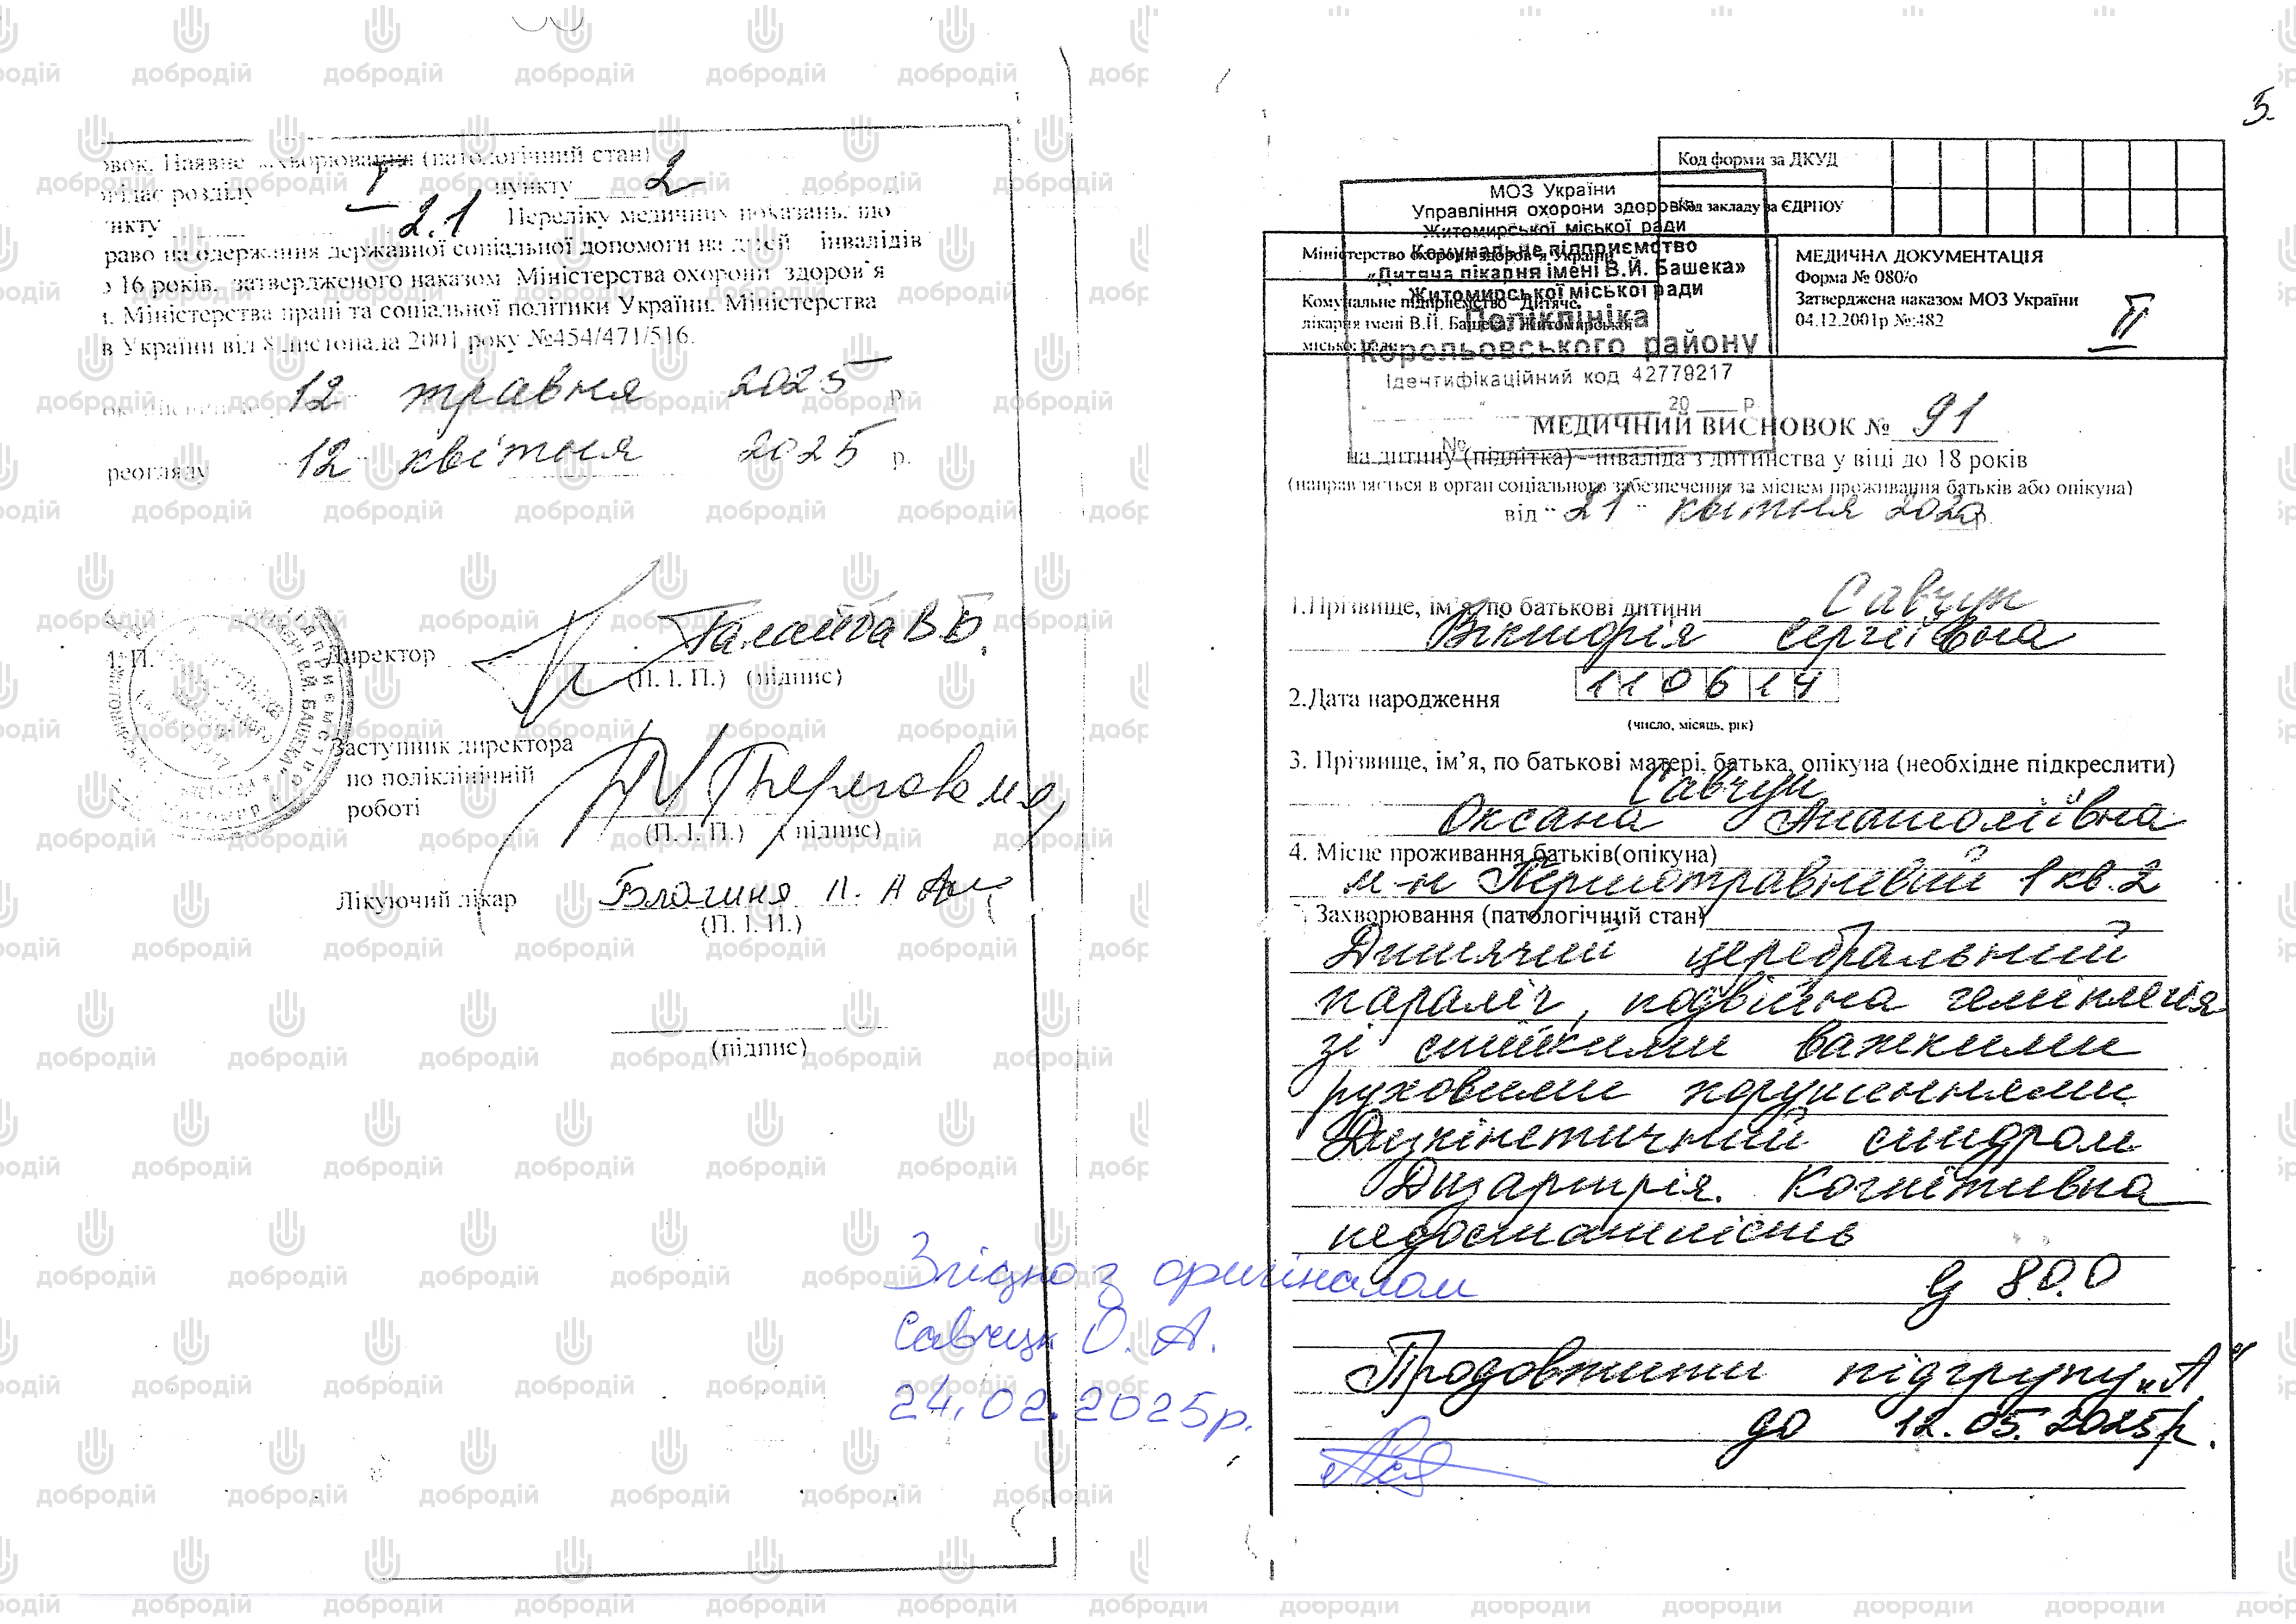 овок. Наявне захворювання (патологічний стан)
розділу I пункту 2
нкту 2.1 Переліку медичних показань, що
раво на одержання державної соціальної допомоги на дітей – інвалідів
о 16 років, затвердженого наказом Міністерства охорони здоров`я
и, Міністерства праці та соціальної політики України, Міністерства
в України від 8 листопада 2001 року №454/471/516.
12 травня 2025 р.
реогляду "12" квітня 2025 р.
Директор Галайба В.Б.
(П. І. П.) (підпис)
Заступник директора
по поліклінічній
роботі
(П. І. П.) (підпис)
Лікуючий лікар Благиня Л. А
(П. І. П.)
(підпис)
Згідно з оригіналом
Савчук О. А.
24.02.2025р.
5.
Код форми за ДКУД
Код закладу за ЄДРПОУ
МОЗ України
Управління охорони здоров'я
Житомирської міської ради
Комунальне підприємство
«Дитяча лікарня імені В.Й. Башека»
Житомирської міської ради
Поліклініка
Корольовського району
Ідентифікаційний код 42779217
20 р.
№
Міністерство охорони здоров'я України
Комунальне підприємство "Дитяча
лікарня імені В.Й. Башека" Житомирської
міської ради
МЕДИЧНА ДОКУМЕНТАЦІЯ
Форма № 080/о
Затверджена наказом МОЗ України
04.12.2001р №:482
II
МЕДИЧНИЙ ВИСНОВОК № 91
на дитину (підлітка) - інваліда з дитинства у віці до 18 років
(направляється в орган соціального забезпечення за місцем проживання батьків або опікуна)
від "21" квітня 2020р.
1.Прізвище, ім'я, по батькові дитини Савчук
Вікторія Сергіївна
2.Дата народження 110614
(число, місяць, рік)
3. Прізвище, ім'я, по батькові матері, батька, опікуна (необхідне підкреслити)
Савчук
Оксана Анатоліївна
4. Місце проживання батьків(опікуна)
м-н Першотравневий 1 кв.2
Захворювання (патологічний стан)
Дитячий церебральний
параліч, подвійна геміплегія
зі стійкими важкими
руховими порушеннями.
Дизкінетичний синдром
Дизартрія. Когнітивна
недостатність
G 80.0
Продовжити підгрупу „А"
до 12.05.2025р.